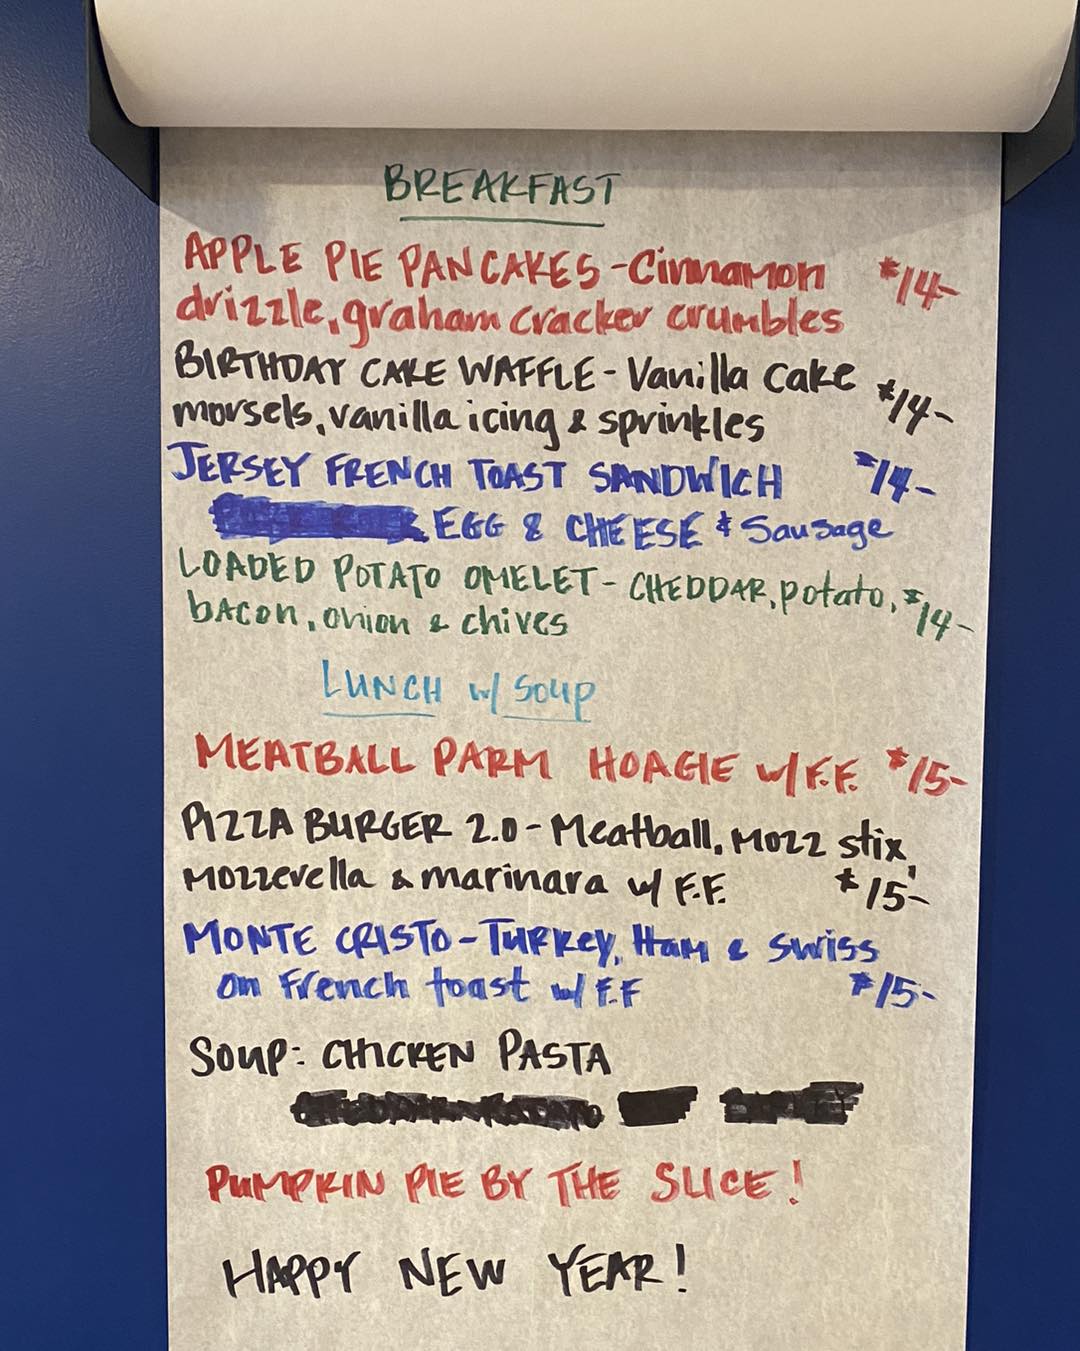 BREAKFAST
APPLE PIE PANCAKES - Cinnamon $14-
drizzle, graham cracker crumbles
BIRTHDAY CAKE WAFFLE - Vanilla cake $14-
morsels, vanilla icing & sprinkles
JERSEY FRENCH TOAST SANDWICH $14-
EGG & CHEESE & Sausage
LOADED POTATO OMELET - CHEDDAR, potato, $14-
bacon, onion & chives
LUNCH w/ SOUP
MEATBALL PARM HOAGIE w/ F.F. $15-
PIZZA BURGER 2.0 - Meatball, Mozz stix,
Mozzerella & marinara w/ F.F. $15-
MONTE CRISTO - Turkey, Ham & Swiss
on French toast w/ F.F $15-
SOUP: CHICKEN PASTA
PUMPKIN PIE BY THE SLICE!
HAPPY NEW YEAR!